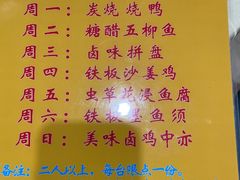 周一：炭烧烧鸭
周二：糖醋五柳鱼
周三：卤味拼盘
周四：铁板沙姜鸡
周五：虫草花浸鱼腐
周六：铁板墨鱼须
周日：美味卤鸡中亦
备注：二人以上，每台限点一份。